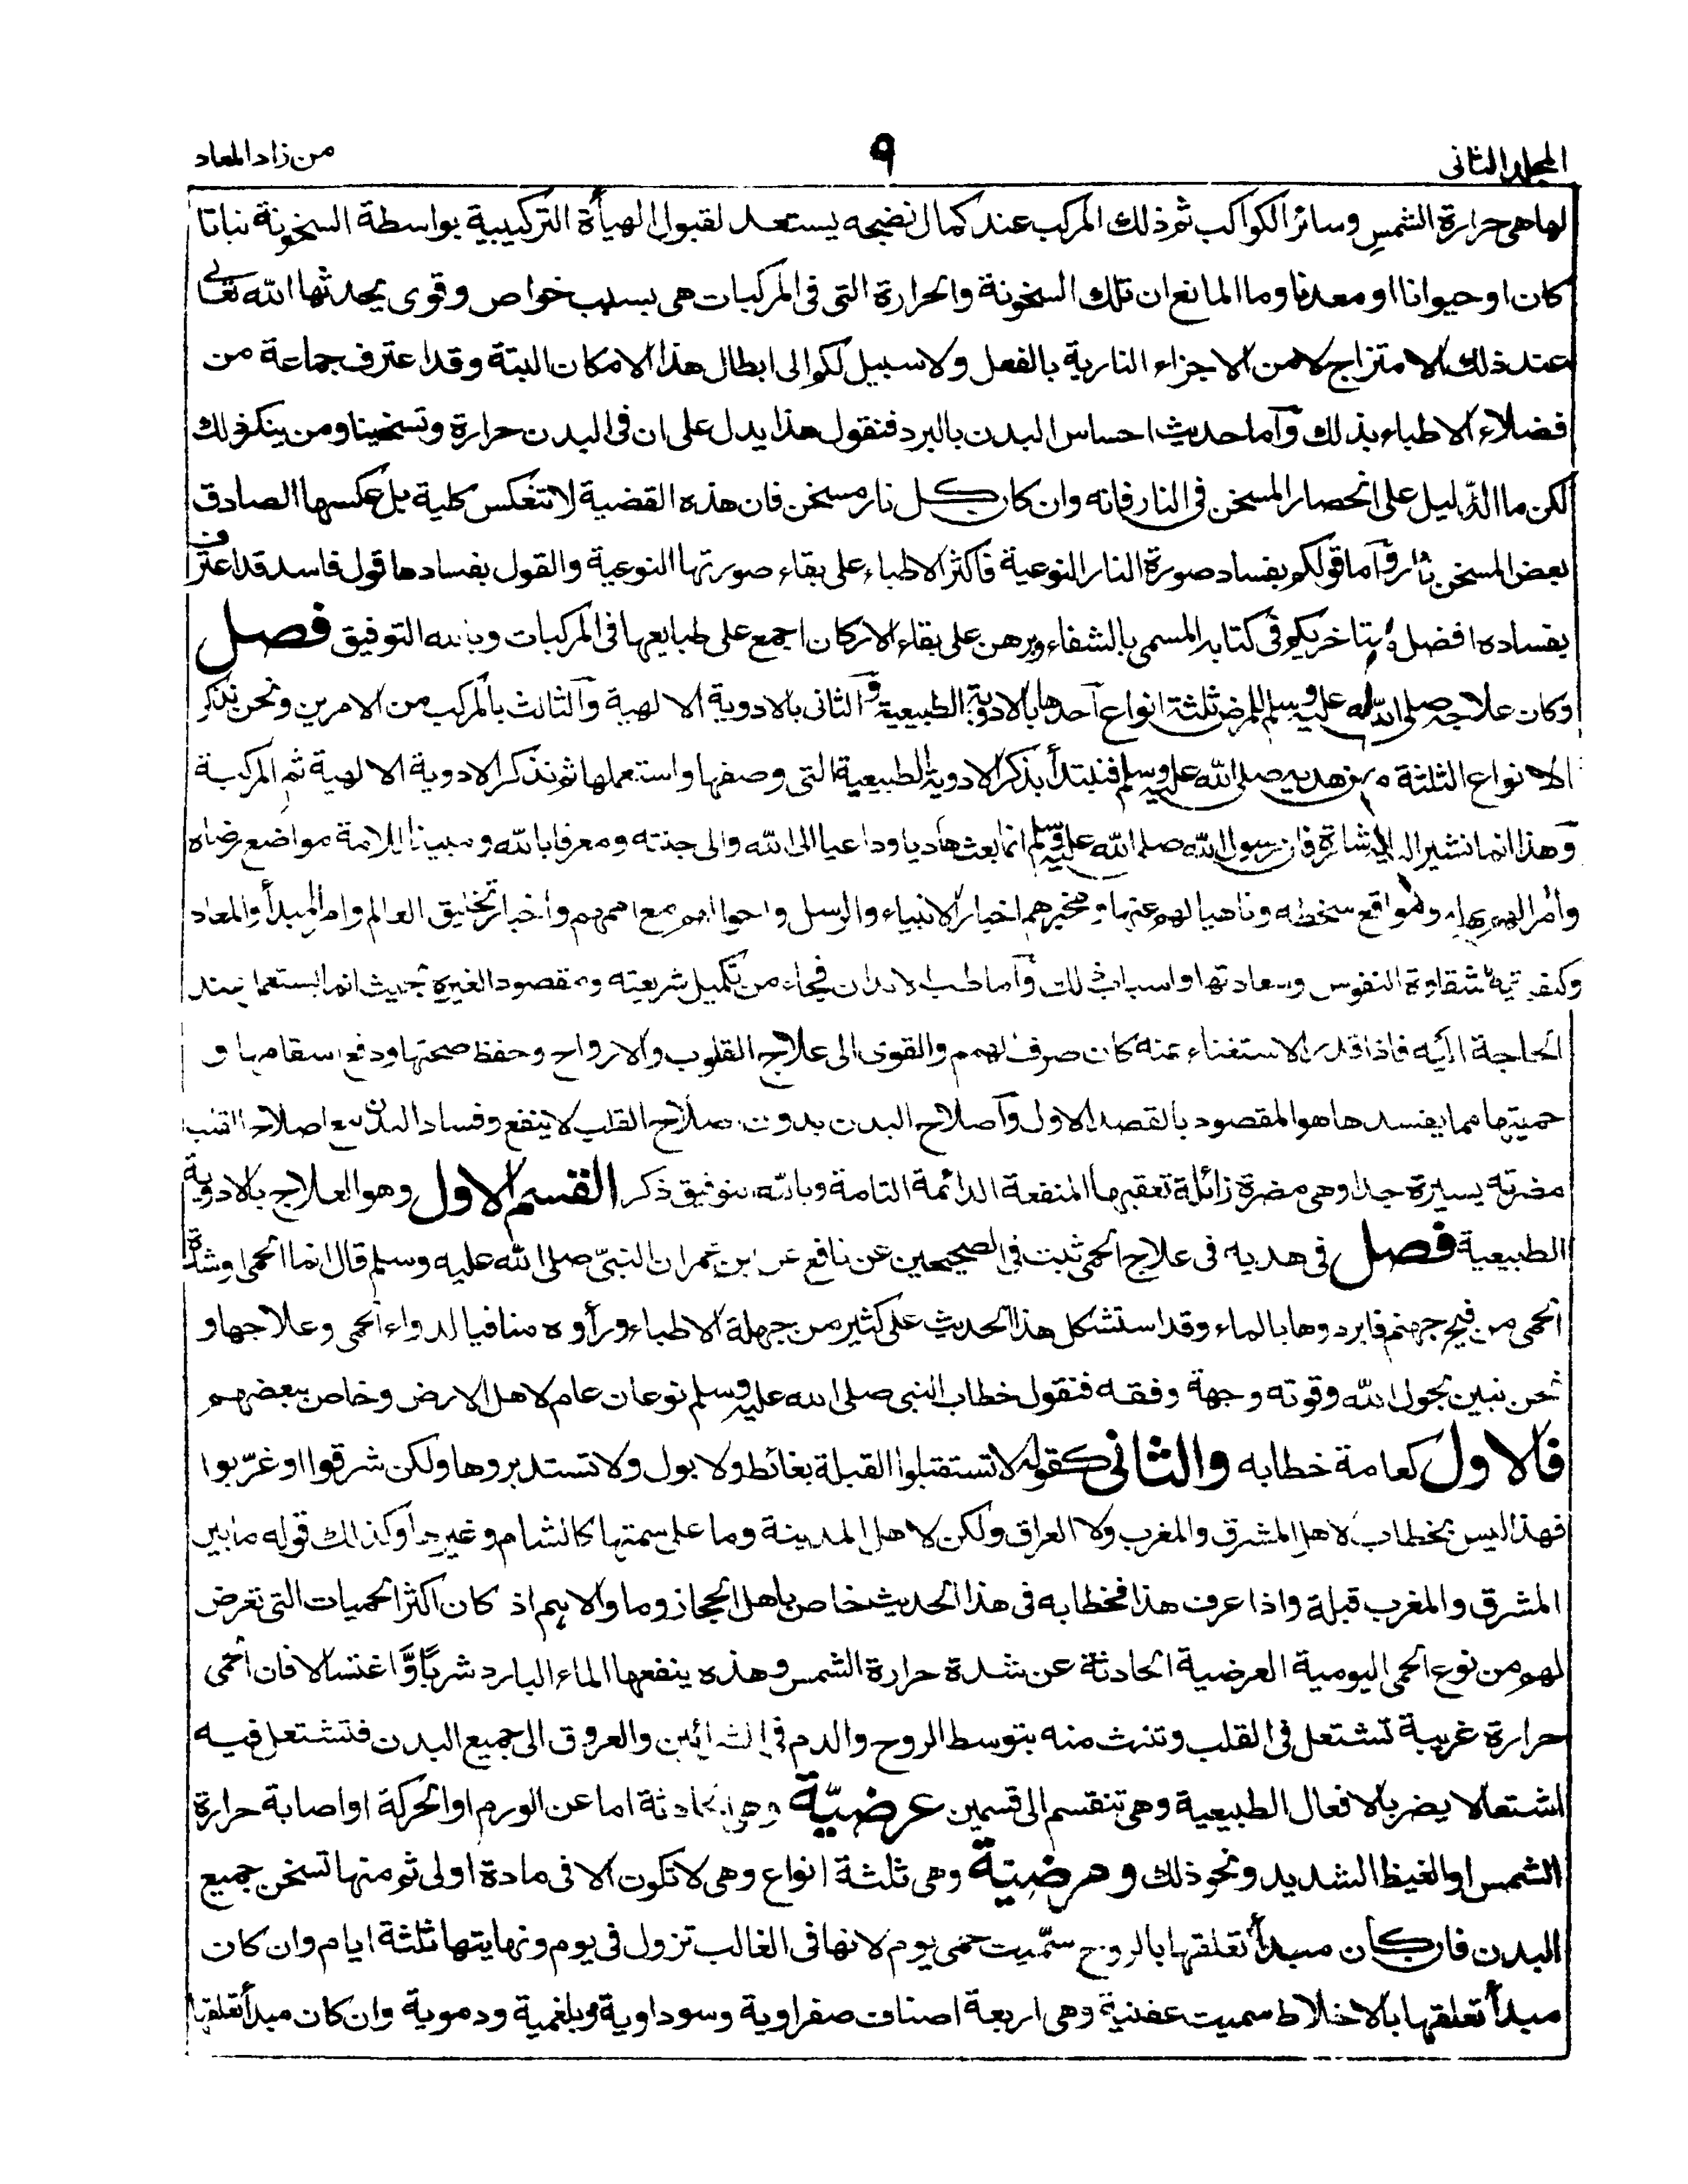 المجلد الثانى
٩
من زاد المعاد
لها هى حرارة الشمس وسائر الكواكب ثم ذلك المركب عند كمال نضجه يستعد لقبول الهيأة التركيبية بواسطة السخونة نباتا
كان او حيوانا او معدنا وما المانع ان تلك السخونة والحرارة التى فى المركبات هى بسبب خواص وقوى يحدثها الله تعالى
عند ذلك الامتزاج لا من الاجزاء النارية بالفعل ولا سبيل لكم الى ابطال هذا الامكان البتة وقد اعترف جماعة من
فضلاء الاطباء بذلك وآما حديث احساس البدن بالبرد فنقول هذا يدل على ان فى البدن حرارة وتسخينا ومن ينكر ذلك
لكن ما الدليل على انحصار المسخن فى النار فانه وان كان كل نار مسخن فان هذه القضية لا تنعكس كلية بل عكسها الصادق
بعض المسخن نار وآما قولكم بفساد صورة النار النوعية فاكثر الاطباء على بقاء صورتها النوعية والقول بفسادها قول فاسد قد اعترف
بفساده افضل متاخريكم فى كتابه المسمى بالشفاء وبرهن على بقاء الاركان اجمع على طبايعها فى المركبات وبالله التوفيق فصل
وكان علاجه صلى الله عليه وسلم للمرض ثلثة انواع آحدها بالادوية الطبيعية وآلثانى بالادوية الالهية وآلثالث بالمركب من الامرين ونحن نذكر
الانواع الثلثة من هديه صلى الله عليه وسلم فنبتدأ بذكر الادوية الطبيعية التى وصفها واستعملها ثم نذكر الادوية الالهية ثم المركبة
وهذا انما نشير اليه اشارة فان رسول الله صلى الله عليه وسلم انما بعث هاديا وداعيا الى الله والى جنته ومعرفا بالله ومبينا للامة مواضع رضاه
وآمرا لهم بها ومواقع سخطه وناهيا لهم عنها ومخبرهم اخبار الانبياء والرسل واحوالهم مع اممهم واخبار تخليق العالم وامر المبدأ والمعاد
وكيفية شقاوة النفوس وسعادتها واسباب ذلك وآما طب الابدان فجاء من تكميل شريعته ومقصود الغيره بحيث انما يستعمل عند
الحاجة اليه فاذا قدر الاستغناء عنه كان صرف الهمم والقوى الى علاج القلوب والارواح وحفظ صحتها ودفع اسقامها و
حميتها مما يفسدها هو المقصود بالقصد الاول وآصلاح البدن بدون صلاح القلب لا ينفع وفساد البدن مع اصلاح القلب
مضرته يسيرة جدا وهى مضرة زائلة تعقبها المنفعة الدائمة التامة وبالله التوفيق ذكر القسم الاول وهو العلاج بالادوية
الطبيعية فصل فى هديه فى علاج الحمى ثبت فى الصحيحين عن نافع عن ابن عمر ان النبى صلى الله عليه وسلم قال انما الحمى او شدة
الحمى من فيح جهنم فابردوها بالماء وقد استشكل هذا الحديث على كثير من جهلة الاطباء ورأوه منافيا لدواء الحمى وعلاجها و
نحن نبين بحول الله وقوته وجهة وفقه فنقول خطاب النبى صلى الله عليه وسلم نوعان عام لاهل الارض وخاص ببعضهم
فالاول كعامة خطابه والثانى كقوله لا تستقبلوا القبلة بغائط ولا بول ولا تستدبروها ولكن شرقوا او غرّبوا
فهذا ليس بخطاب لاهل المشرق والمغرب ولا العراق ولكن لاهل المدينة وما على سمتها كالشام وغيرها وكذلك قوله ما بين
المشرق والمغرب قبلة واذا عرف هذا فخطابه فى هذا الحديث خاص باهل الحجاز وما والاهم اذ كان اكثر الحميات التى تعرض
لهم من نوع الحمى اليومية العرضية الحادثة عن شدة حرارة الشمس وهذه ينفعها الماء البارد شربًا وّاغتسالا فان الحمى
حرارة غريبة تشتعل فى القلب وتنبث منه بتوسط الروح والدم فى الشرائين والعروق الى جميع البدن فتشتعل فيه
اشتعالا يضر بالافعال الطبيعية وهى تنقسم الى قسمين عرضيّة وهى الحادثة اما عن الورم او الحركة او اصابة حرارة
الشمس او الغيظ الشديد ونحو ذلك ومرضيّة وهى ثلثة انواع وهى لا تكون الا فى مادة اولى ثم منها تسخن جميع
البدن فان كان مبدأ تعلقها بالروح سمّيت حمى يوم لانها فى الغالب تزول فى يوم ونهايتها ثلثة ايام وان كان
مبدأ تعلقها بالاخلاط سميت عفنية وهى اربعة اصناف صفراوية وسوداوية وبلغمية ودموية وان كان مبدأ تعلقها